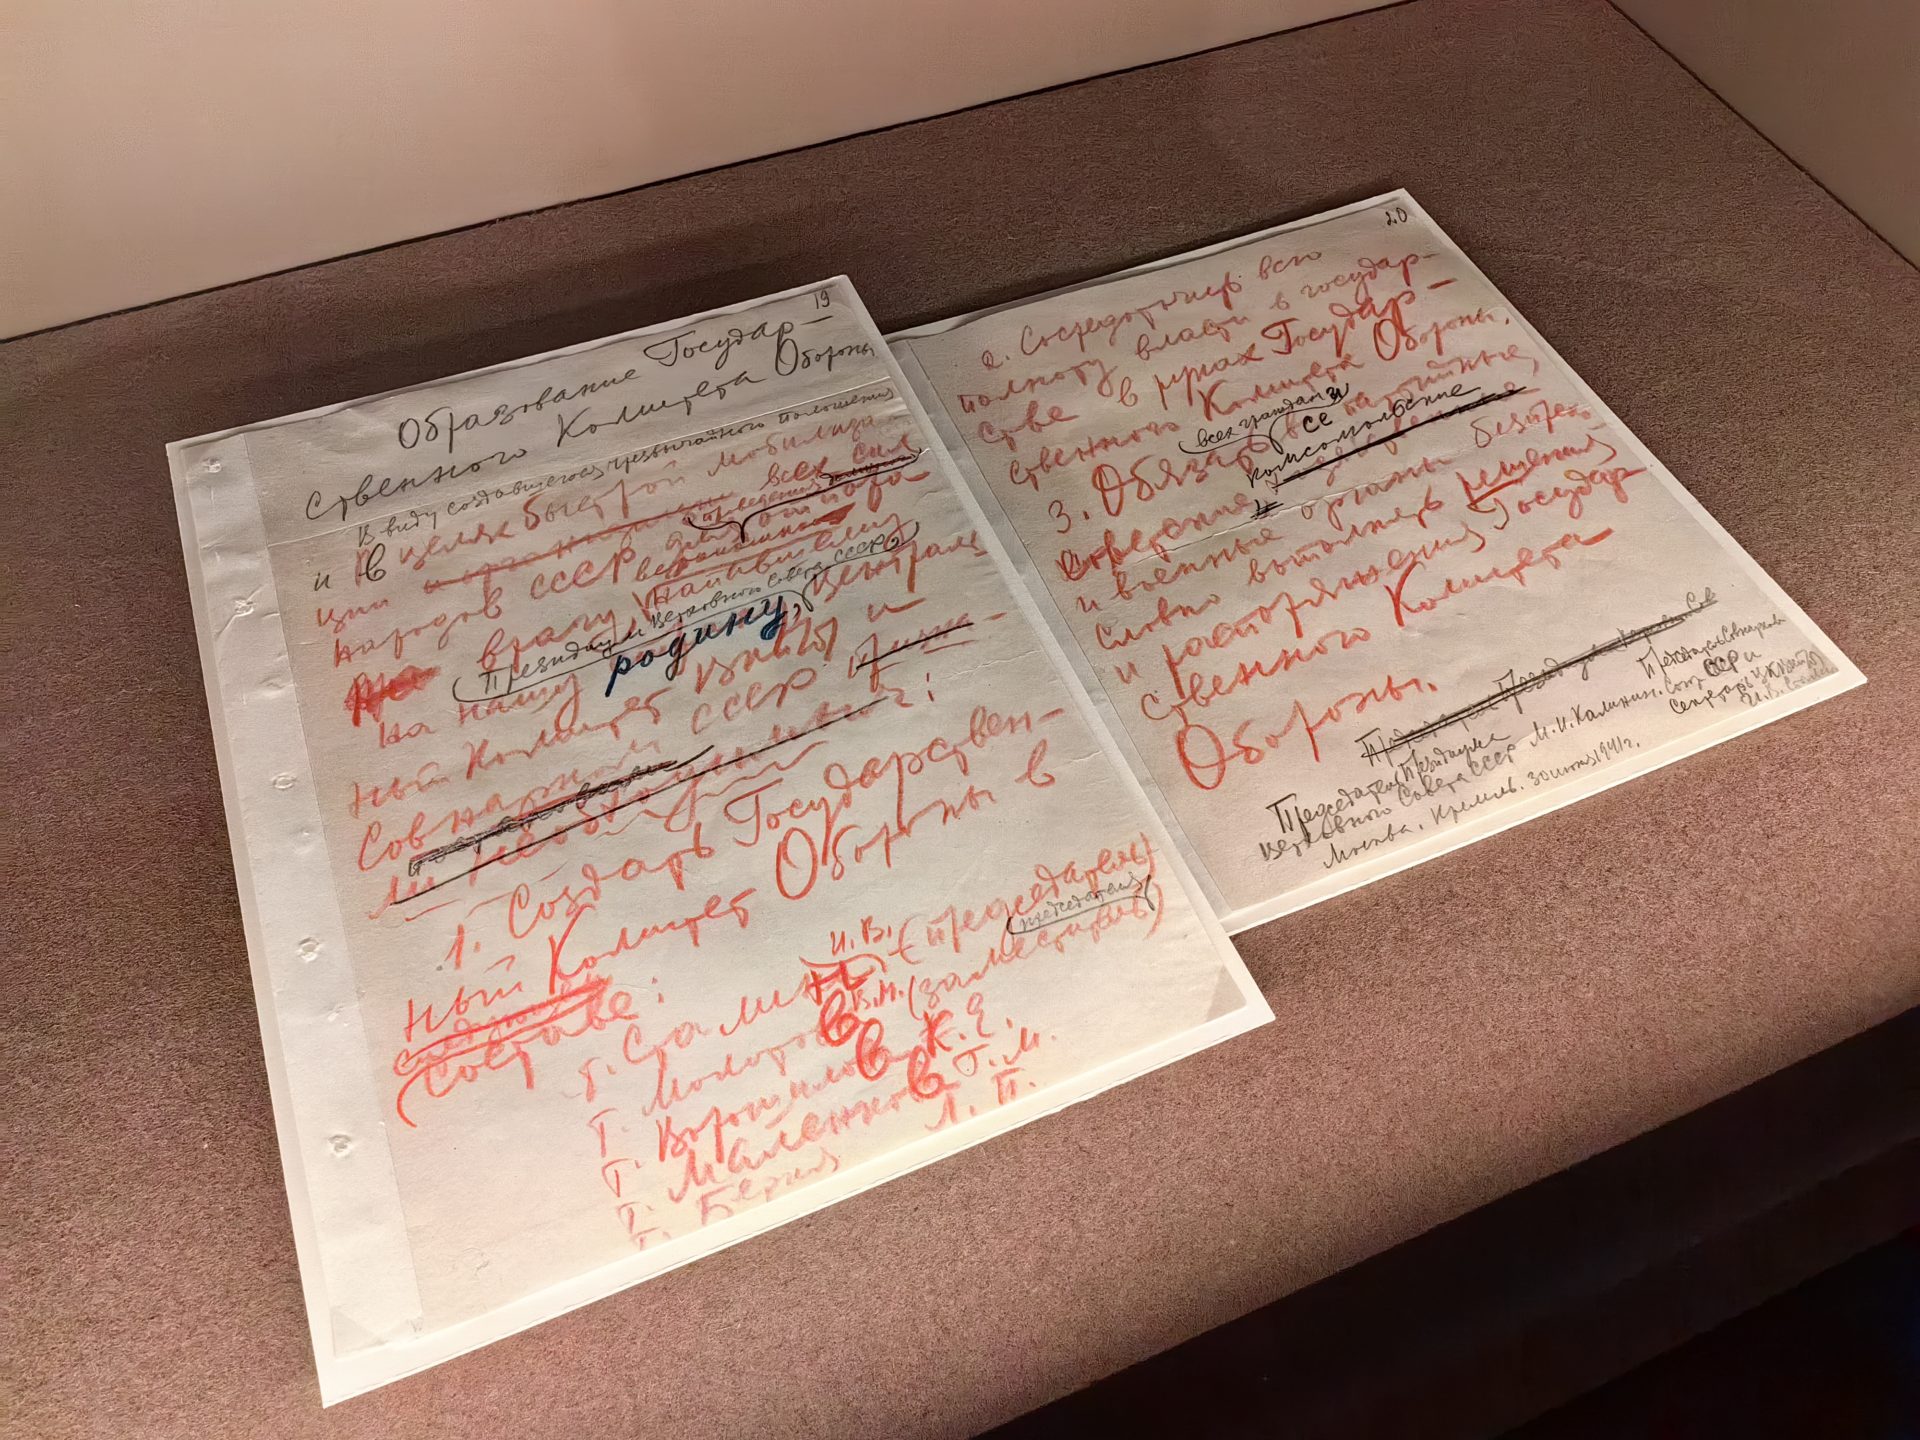 19
Образование Государ-
ственного Комитета Обороны
В виду создавшегося чрезвычайного положения
и В целях быстрой мобилиза-
ции всех сил
народов СССР для отпора
врагу,
Президиум Верховного Совета СССР,
на нашу родину, Централь-
ный Комитет ВКП(б) и
Совнарком СССР
признали необходимым:
1. Создать Государствен-
ный Комитет Обороны в
составе:
т. Сталин И.В. (председатель)
председателя
т. Молотов В.М. (заместитель)
т. Ворошилов К.Е.
т. Маленков Г.М.
т. Берия Л.П.
20
2. Сосредоточить всю
полноту власти в государ-
стве в руках Государ-
ственного Комитета Обороны.
всех граждан и
3. Обязать все партийные,
комсомольские
советские,
и военные органы беспре-
словно выполнять решения
и распоряжения Государ
ственного Комитета
Обороны.
Председатель Президиума
Верховного Совета СССР М.И. Калинин.
Председатель Совнаркома
Союза ССР и
Секретарь ЦК ВКП(б)
И.В. Сталин
Москва. Кремль. 30 июня 1941 г.